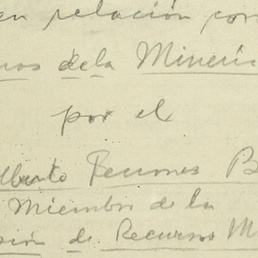 en relación con
de la Minería
por el
Alberto Terrones B
Miembro de la
de Recursos M